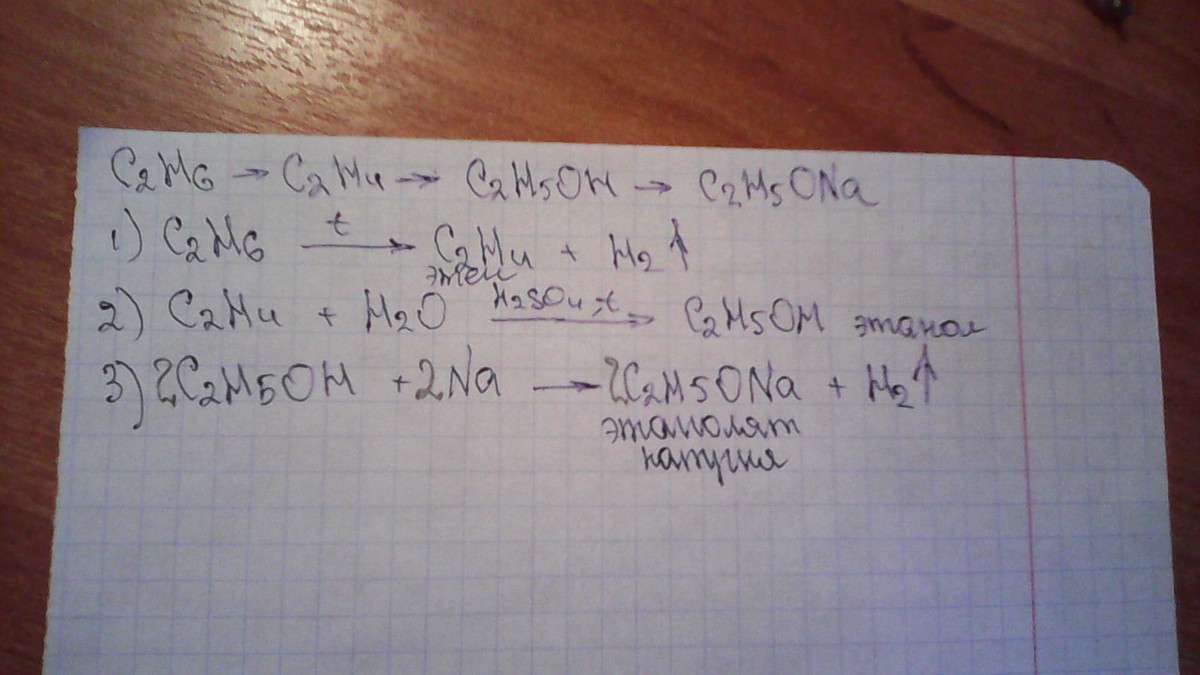 C₂H₆ → C₂H₄ → C₂H₅OH → C₂H₅ONa
1) C₂H₆ —t→ C₂H₄ + H₂↑
этен
2) C₂H₄ + H₂O —H₂SO₄, t→ C₂H₅OH этанол
3) 2C₂H₅OH + 2Na → 2C₂H₅ONa + H₂↑
этанолят
натрия